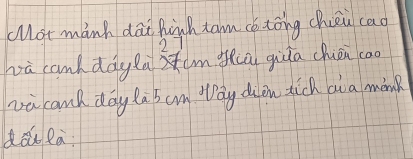 Một mảnh đất hình tam có tổng chiều cao
và cạnh đáy là 27 cm Hiệu giữa chiều cao
và cạnh đáy là 5 cm Vậy diện tích của mảnh
đất là: